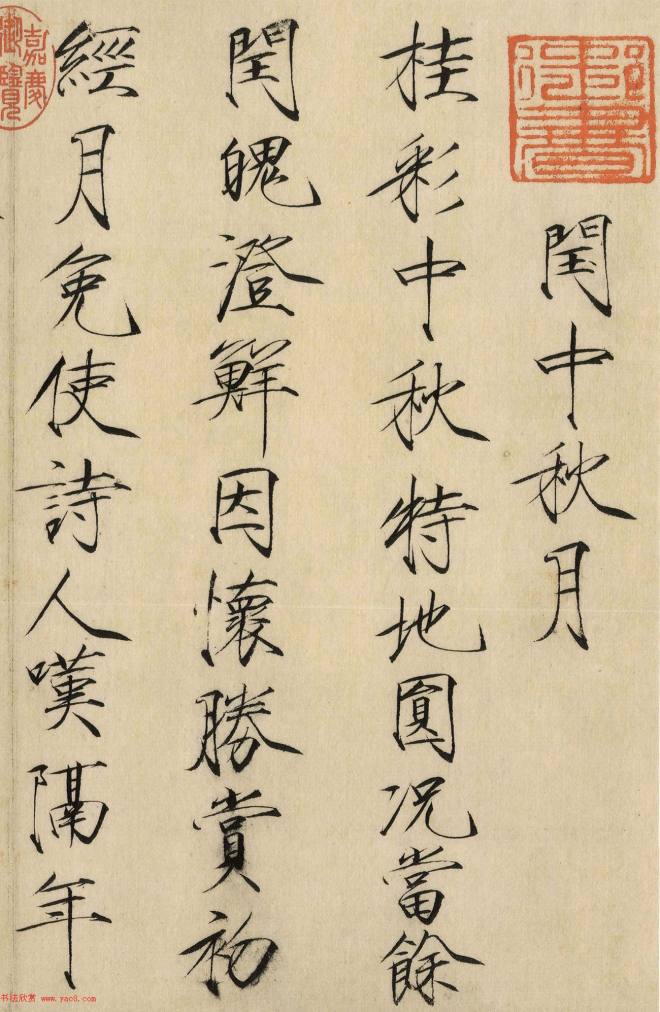 閏中秋月
桂彩中秋特地圓況當餘
閏魄澄鮮因懷勝賞初
經月免使詩人嘆隔年
御書
嘉慶
御覽
书法欣赏 www.yac8.com